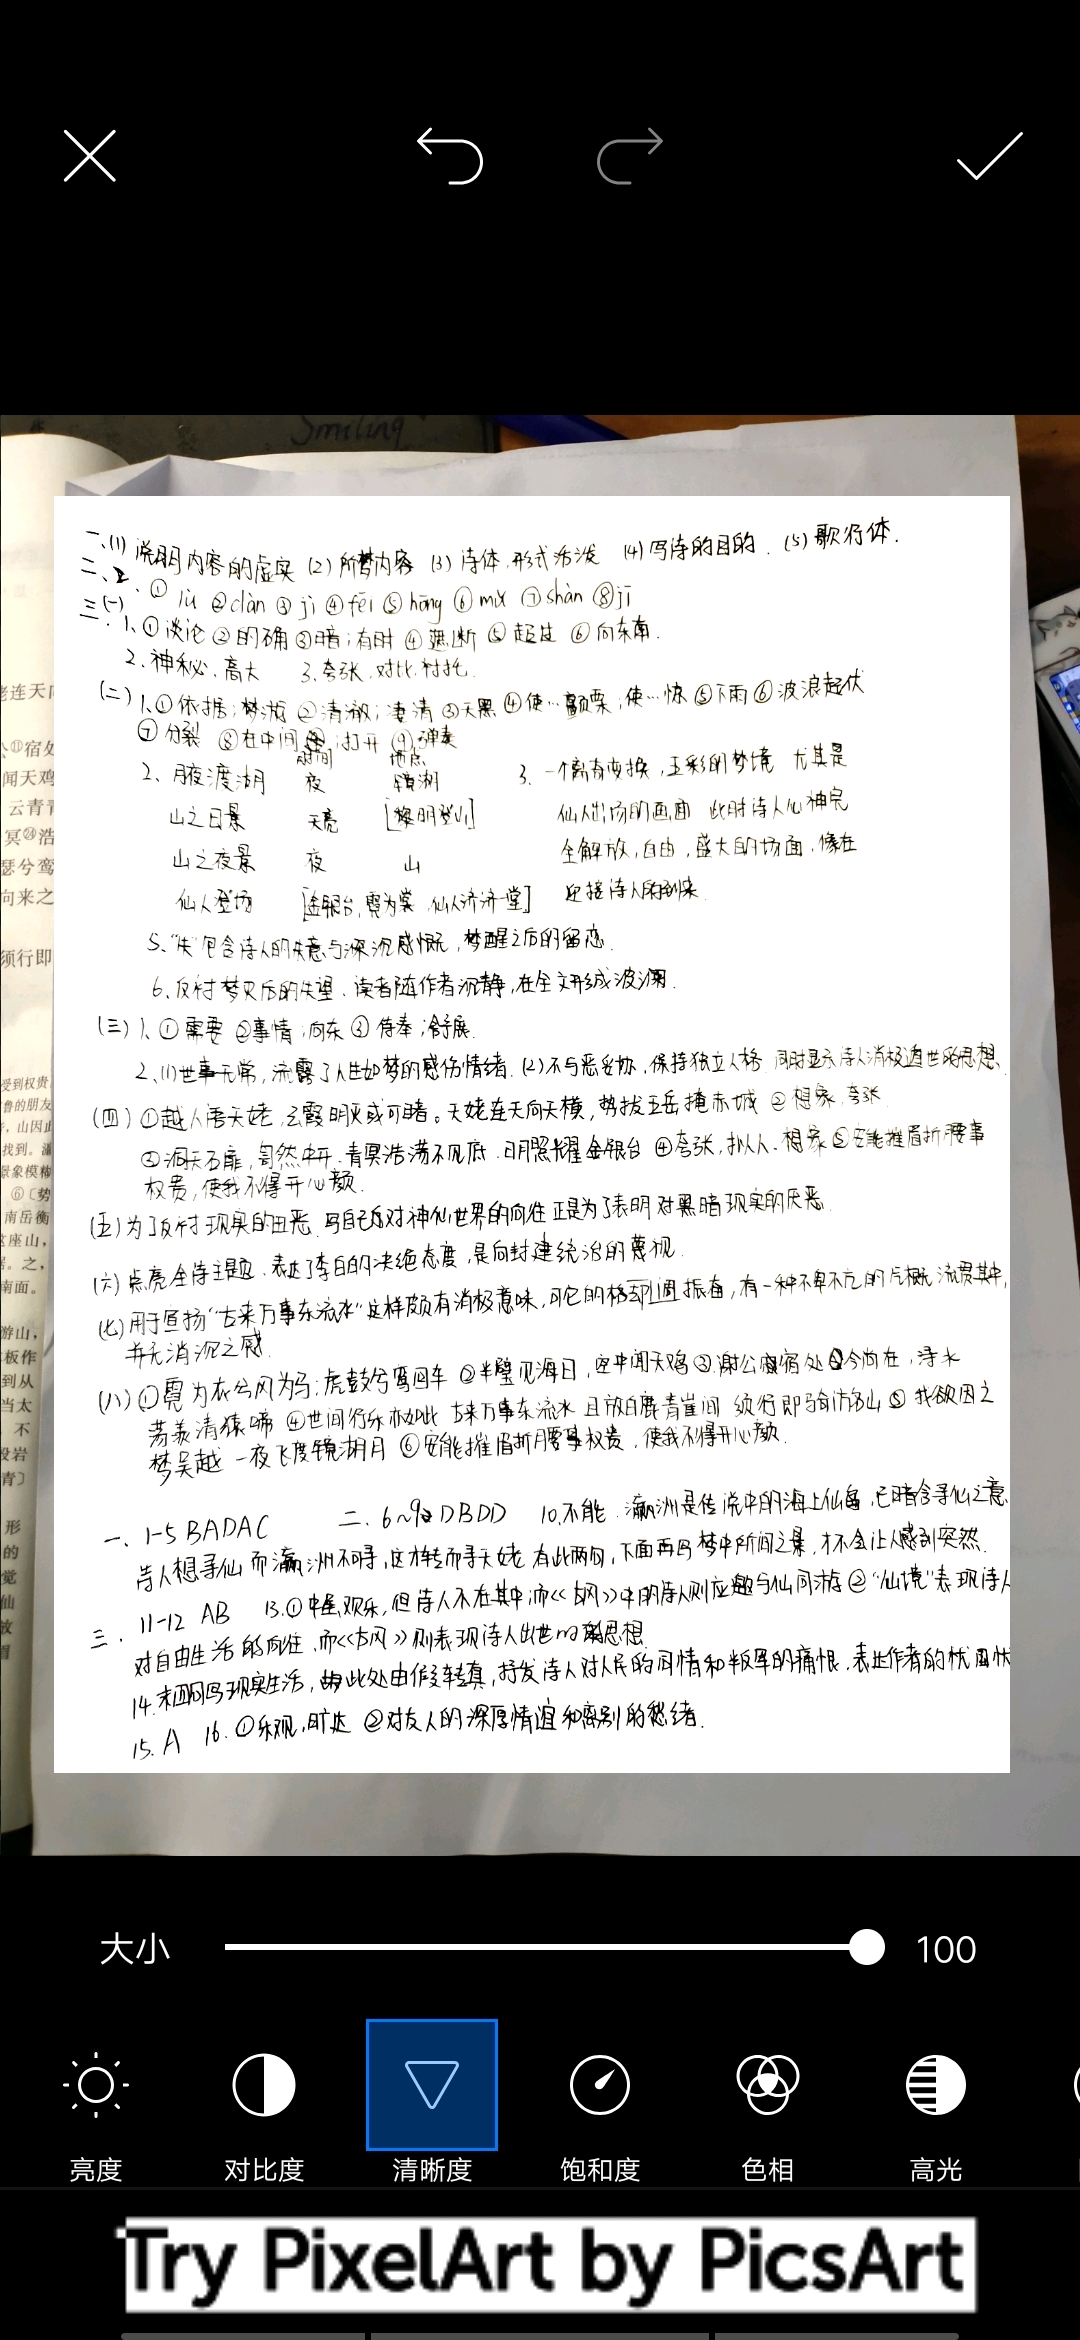 Smiling
一、(1) 说明内容的虚实 (2) 所梦内容 (3) 诗体.形式活泼 (4) 写诗的目的. (5) 歌行体.
三(一)
1、①谈论 ②的确 ③暗;有时 ④遮断 ⑤超过 ⑥向东南.
2、神秘、高大 3、夸张.对比.衬托.
(二) 1、①依据;梦游 ②清澈;凄清 ③天黑 ④使…颤栗,使…惊 ⑤下雨 ⑥波浪起伏
⑦分裂 ⑧在中间;打开 ⑨弹奏
时间 地点
2、月夜渡湖 夜 镜湖 3、一个离奇变换,五彩的梦境 尤其是
山之日景 天亮 [黎明登山] 仙人出场的画面 此时诗人心神完
山之夜景 夜 山 全解放,自由,盛大的场面,像在
仙人登场 [金银台,霓为裳,仙人济济一堂] 迎接诗人的到来.
5、"失"包含诗人的失意与深沉感慨,梦醒之后的留恋.
6、反衬梦灭后的失望、读者随作者沉静,在全文形成波澜.
(三) 1、①需要 ②事情;向东 ③侍奉;舒展.
2、(1)世事无常,流露了人生如梦的感伤情绪. (2)不与恶妥协,保持独立人格 同时显示诗人消极遁世的思想.
(四) ①越人语天姥,云霞明灭或可睹。天姥连天向天横,势拔五岳掩赤城 ②想象,夸张.
③洞天石扉,訇然中开.青冥浩荡不见底.日月照耀金银台 ④夸张,拟人、想象 ⑤安能摧眉折腰事
权贵,使我不得开心颜.
(五) 为了反衬现实的丑恶.写自己对神仙世界的向往正是为了表明对黑暗现实的厌恶.
(六) 点亮全诗主题、表达了李白的决绝态度,是向封建统治的蔑视.
(七) 用于宣扬"古来万事东流水"这样颇有消极意味,可它的格却调振奋,有一种不卑不亢的气概流贯其中,
并无消沉之感.
(八) ①霓为衣兮风为马;虎鼓瑟兮鸾回车 ②半壁见海日,空中闻天鸡 ③谢公宿处今尚在,渌水
荡漾清猿啼 ④世间行乐亦如此 古来万事东流水 且放白鹿青崖间 须行即骑访名山 ⑤我欲因之
梦吴越 一夜飞度镜湖月 ⑥安能摧眉折腰事权贵,使我不得开心颜.
一、1-5 BADAC 二、6~9 DBDD 10.不能.瀛洲是传说中的海上仙岛,已暗含寻仙之意
诗人想寻仙而瀛洲不可寻,这才转而寻天姥 有此两句,下面再写梦中所间之景,才不会让人感到突然.
11-12 AB 13.①中虽欢乐,但诗人不在其中而《古风》中的诗人则应邀与仙同游 ②"仙境"表现诗人
三. 对自由生活的向往,而《古风》则表现诗人出世的思想
14.末四句写现实生活,由此处由仙转真,抒发诗人对人民的同情和叛军的痛恨,表达作者的忧国忧
15. A 16.①乐观,旷达 ②对友人的深厚情谊和离别的愁绪.
大小 100
亮度 对比度 清晰度 饱和度 色相 高光
Try PixelArt by PicsArt